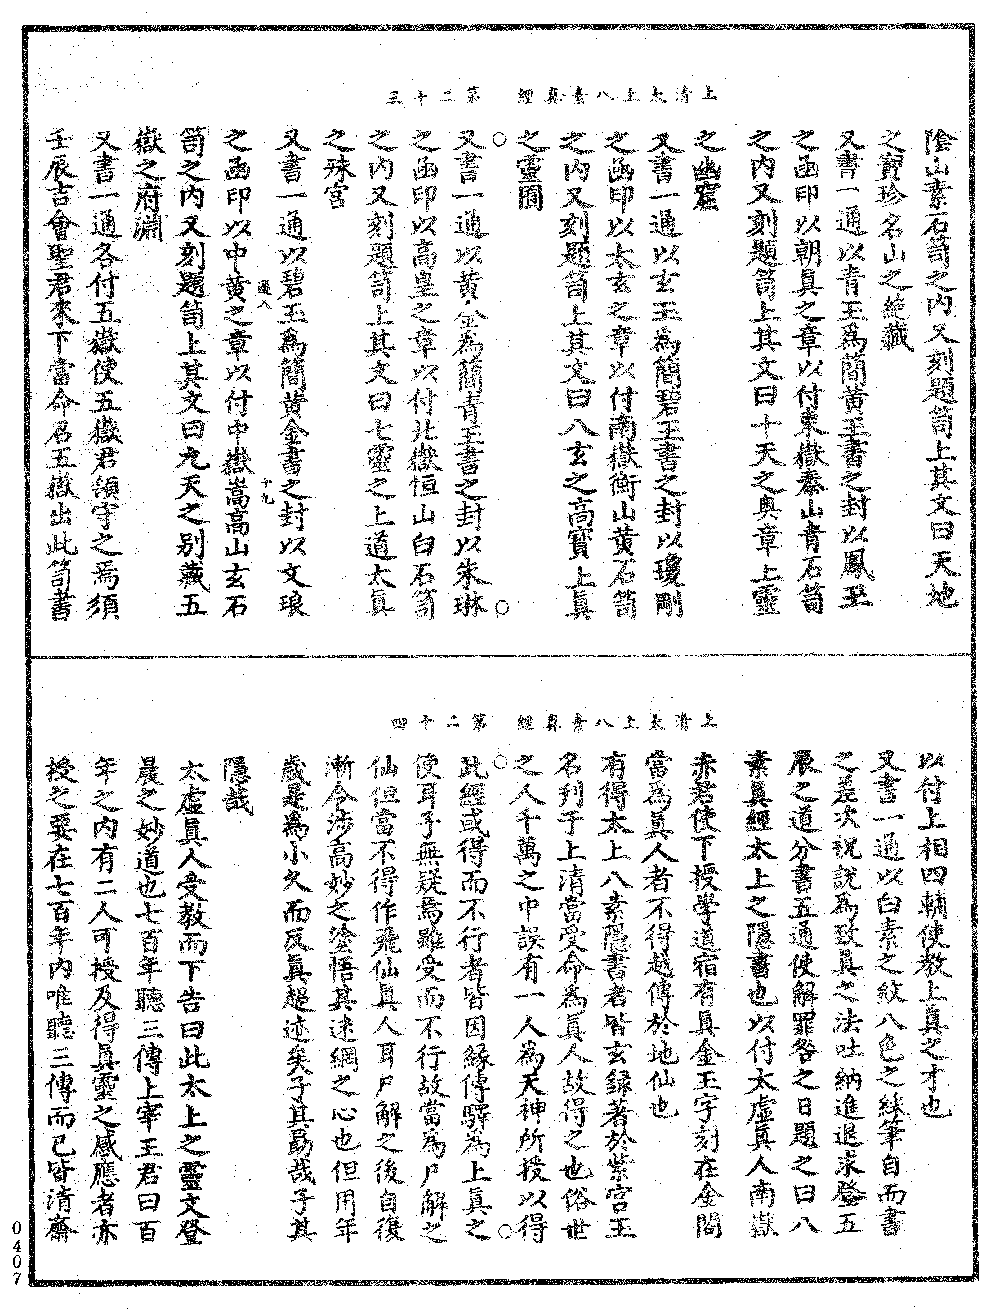 上清太上八素真經　第二十三
陰山素石笥之內又刻題笥上其文曰天地
之寶珍名山之絕藏
又書一通以青玉為簡黃玉書之封以鳳璽
之函印以朝真之章以付東嶽泰山青石笥
之內又刻題笥上其文曰十天之奧章上靈
之幽窟
又書一通以玄玉為簡碧玉書之封以瓊剛
之函印以太玄之章以付南嶽衡山黃石笥
之內又刻題笥上其文曰八玄之高寶上真
之靈圖
又書一通以黃金為簡青玉書之封以朱琳
之函印以高皇之章以付北嶽恒山白石笥
之內又刻題笥上其文曰七靈之上道太真
之殊宮
又書一通以碧玉為簡黃金書之封以文琅
之函印以中黃之章以付中嶽嵩高山玄石
笥之內又刻題笥上其文曰九天之別藏五
嶽之府淵
又書一通各付五嶽使五嶽君領守之焉須
壬辰吉會聖君來下當命召五嶽出此笥書
上清太上八素真經　第二十四
以付上相四輔使教上真之才也
又書一通以白素之紋八色之絲筆自而書
之差次說為致真之法吐納進退求登五
辰之道分書五通使解罪咎之日題之曰八
素真經太上之隱書也以付太虛真人南嶽
赤君使下授學道宿有真金玉字刻在金閣
當為真人者不得越傳於地仙也
有得太上八素隱書者皆玄錄著於紫宮玉
名刊于上清當受命為真人故得之也俗世
之人千萬之中誤有一人為天神所授以得
此經或得而不行者皆因緣傳驛為上真之
使耳子無疑焉雖受而不行故當為尸解之
仙但當不得作飛仙真人耳尸解之後自復
漸令涉高妙之塗悟其迷網之心也但用年
歲是為小久而反真超迹矣子其勗哉子其
隱哉
太虛真人受教而下告曰此太上之靈文登
晨之妙道也七百年聽三傳上宰王君曰百
年之內有二人可授及得真靈之感應者亦
授之要在七百年內唯聽三傳而已皆清齋
0407